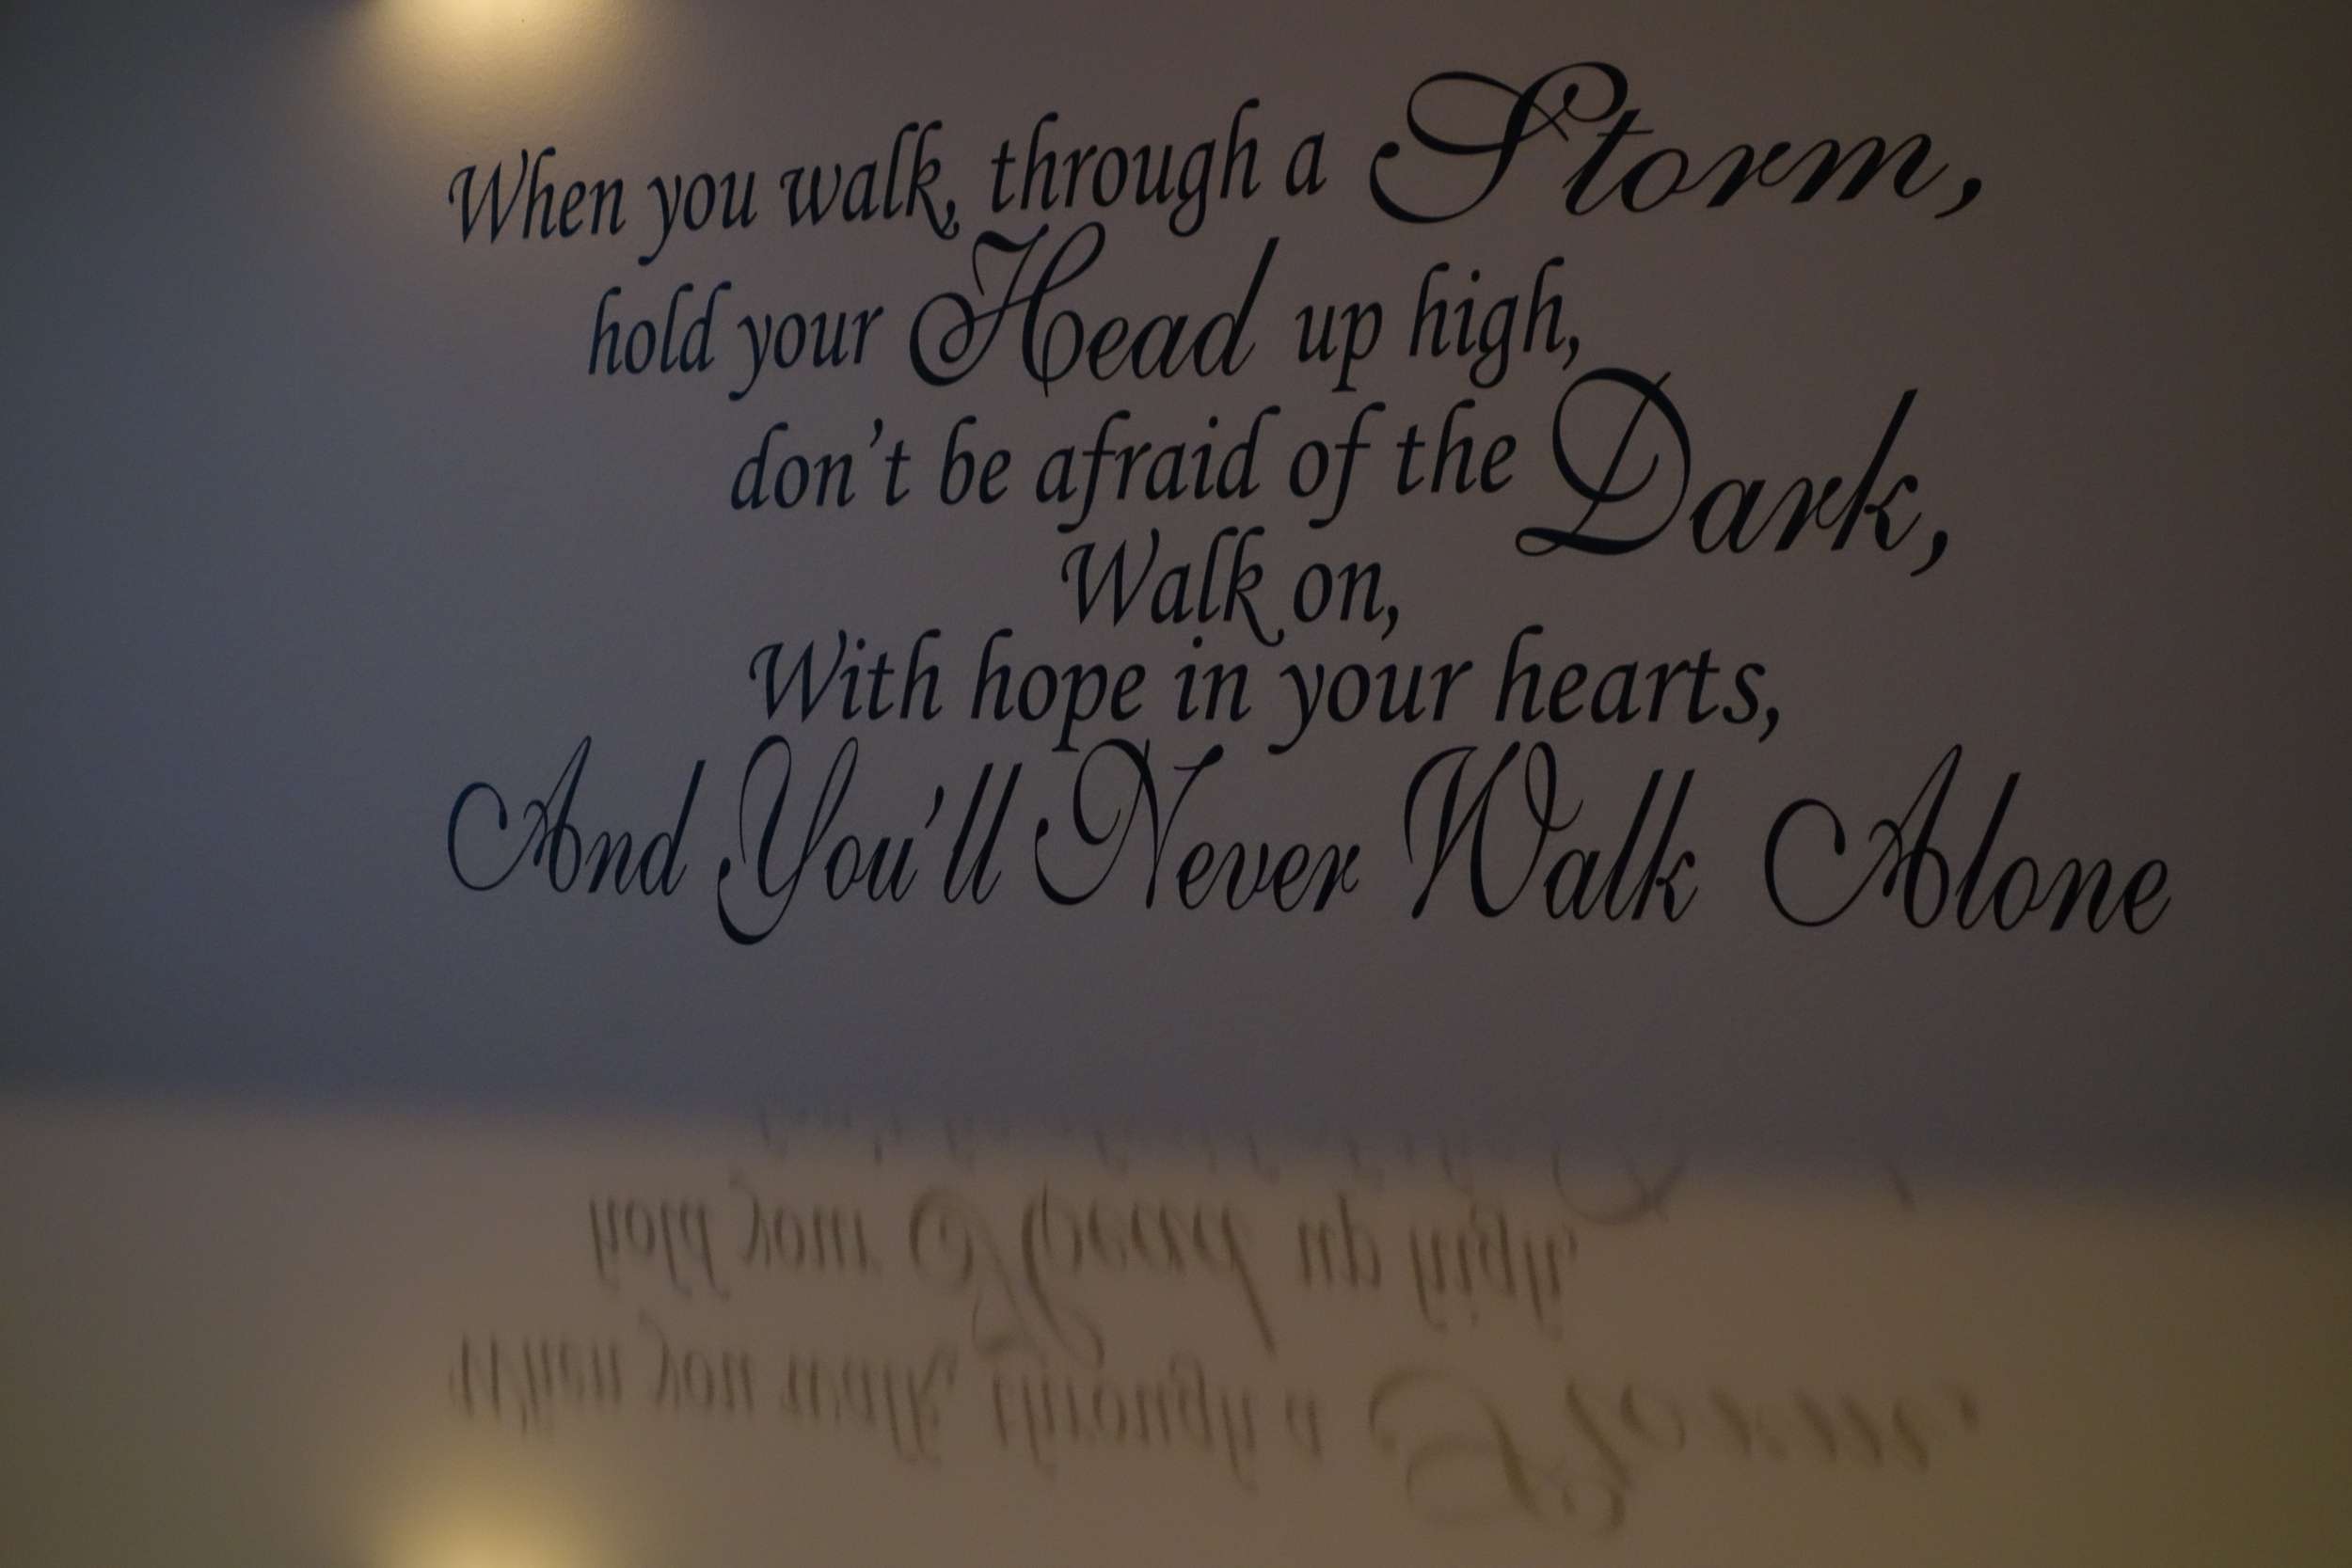 When you walk, through a Storm,
hold your Head up high,
don't be afraid of the Dark,
Walk on,
With hope in your hearts,
And You'll Never Walk Alone